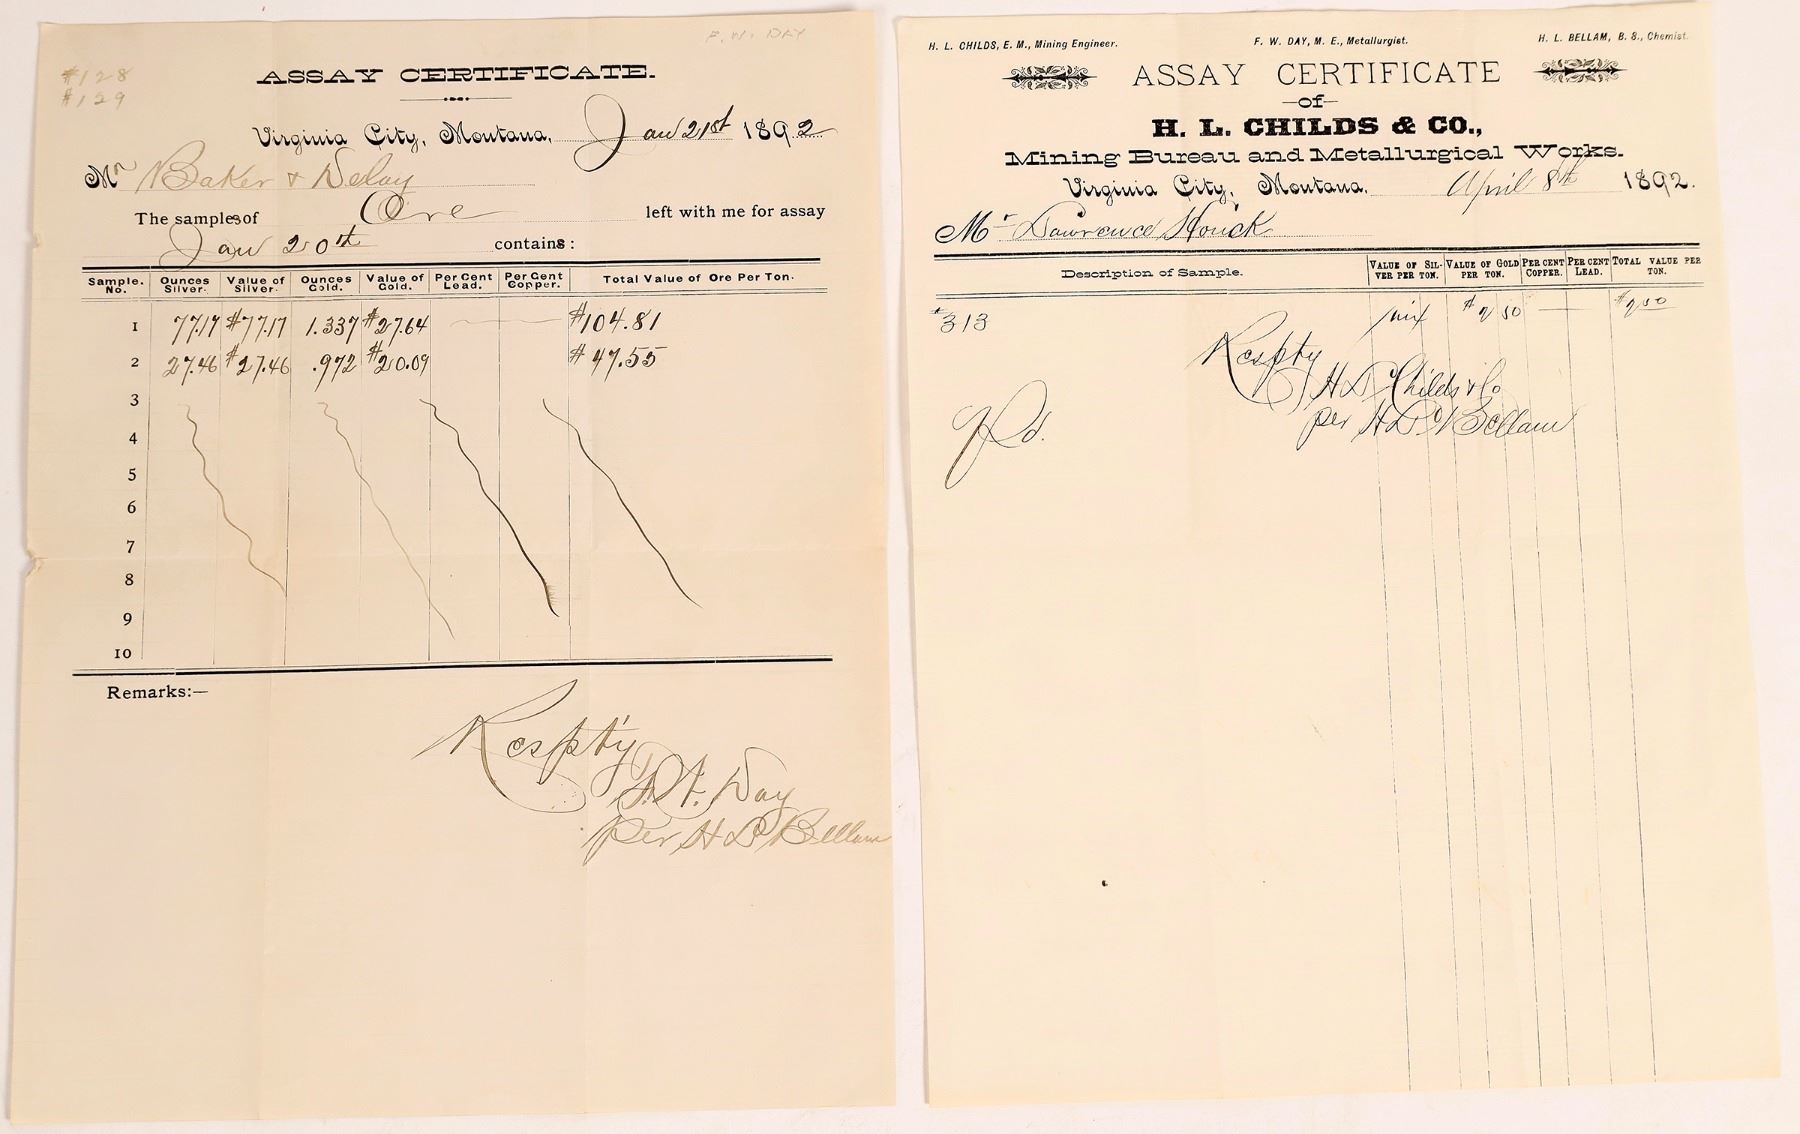 F. W. DAY
#128
#129
ASSAY CERTIFICATE.
Virginia City, Montana, Jan 21st 1892
Mr Baker & Delay
The samples of Ore left with me for assay
Jan 20th contains:
Sample. No. Ounces Silver. Value of Silver. Ounces Gold. Value of Gold. Per Cent Lead. Per Cent Copper. Total Value of Ore Per Ton.
1 77.17 $77.17 1.337 $27.64 — — $104.81
2 27.46 $27.46 .972 $20.09 $47.55
3
4
5
6
7
8
9
10
Remarks:—
Respty
F. W. Day
per H L Bellam
H. L. CHILDS, E. M., Mining Engineer. F. W. DAY, M. E., Metallurgist. H. L. BELLAM, B. S., Chemist.
ASSAY CERTIFICATE
—of—
H. L. CHILDS & CO.,
Mining Bureau and Metallurgical Works.
Virginia City, Montana, April 8th 1892.
Mr Lawrence Houck
Description of Sample. VALUE OF SILVER PER TON. VALUE OF GOLD PER TON. PER CENT COPPER. PER CENT LEAD. TOTAL VALUE PER TON.
#313 — 
Respty
H L Childs & Co
per H L Bellam
Pd.